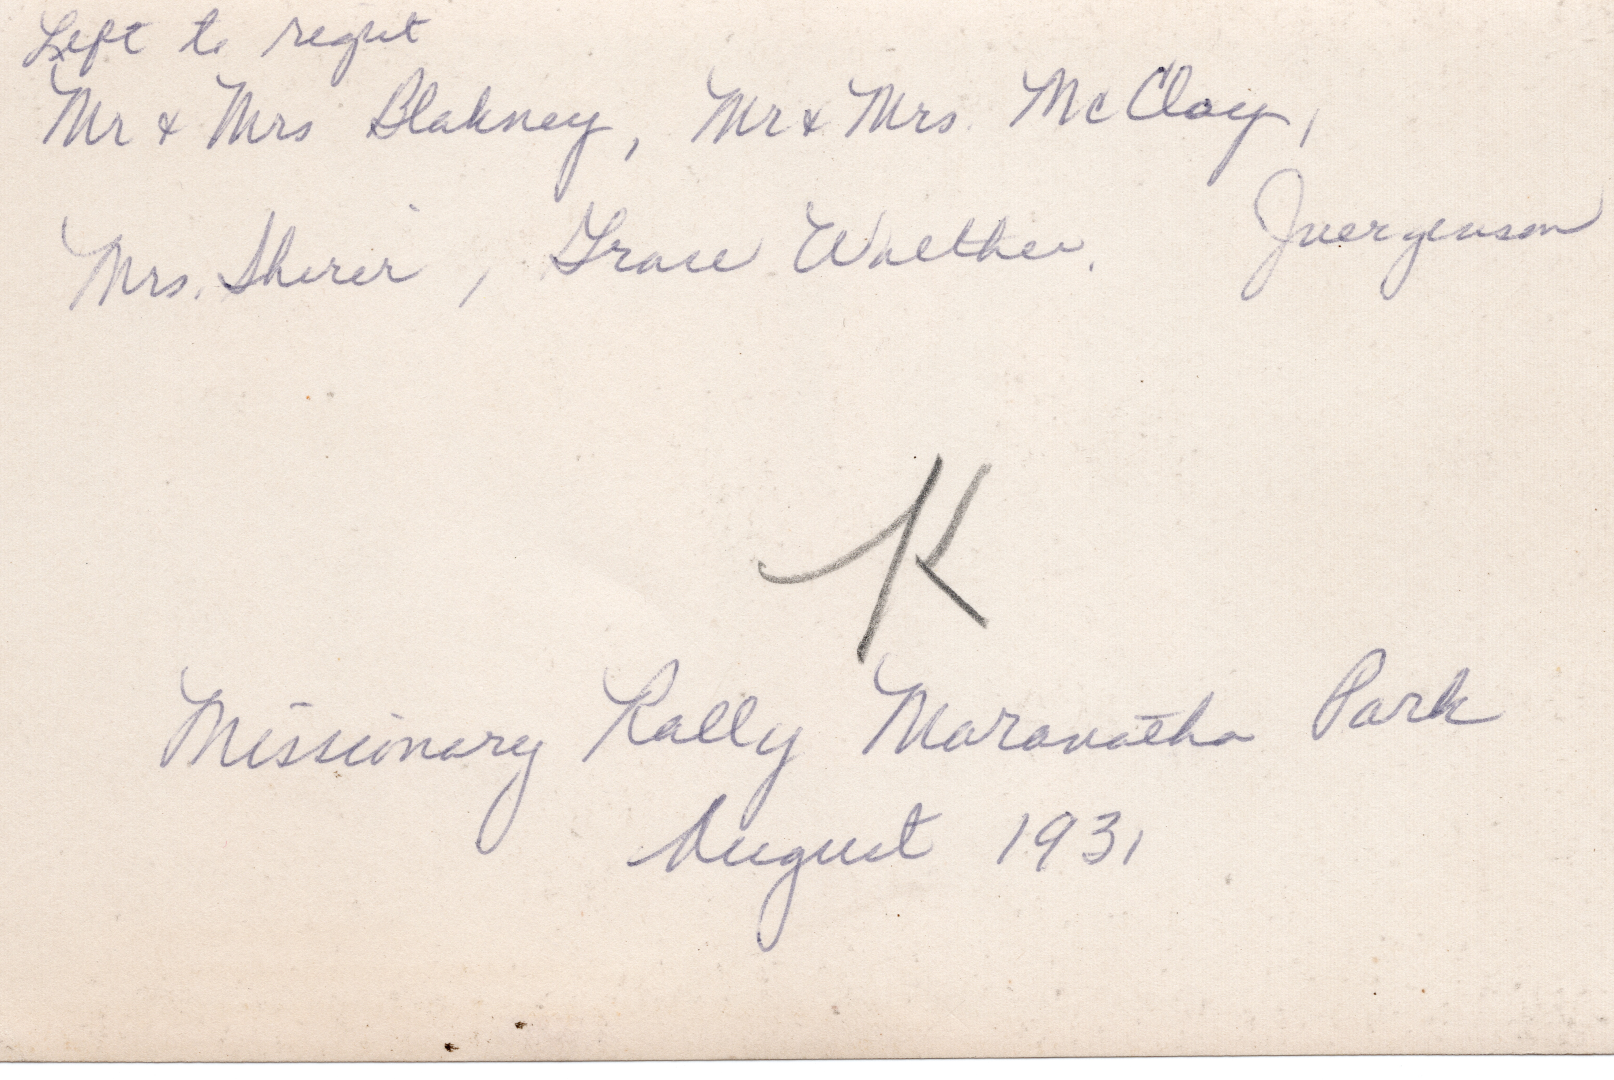 Left to right
Mr & Mrs Blakney, Mr & Mrs. McCloy,
Mrs. Sherer, Grace Walther. Juergenson
K
Missionary Rally Maranatha Park
August 1931